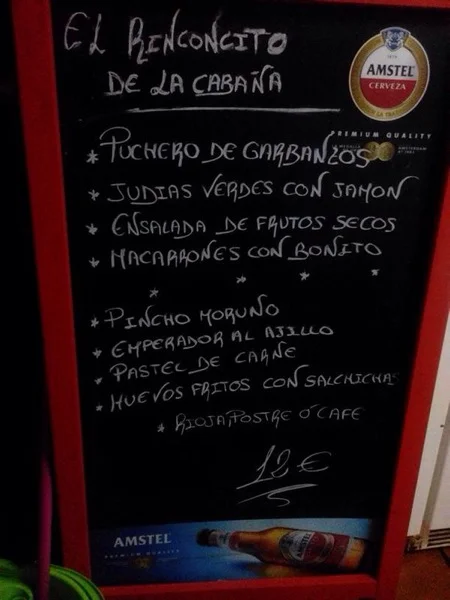 EL RINCONCITO
DE LA CABAÑA
AMSTEL
CERVEZA
PREMIUM QUALITY
* PUCHERO DE GARBANZOS
* JUDIAS VERDES CON JAMON
* ENSALADA DE FRUTOS SECOS
* MACARRONES CON BONITO
* * * *
* PINCHO MORUNO
* EMPERADOR AL AJILLO
* PASTEL DE CARNE
* HUEVOS FRITOS CON SALCHICHAS
* RIOJA POSTRE Ó CAFE
12 €
AMSTEL
PREMIUM QUALITY